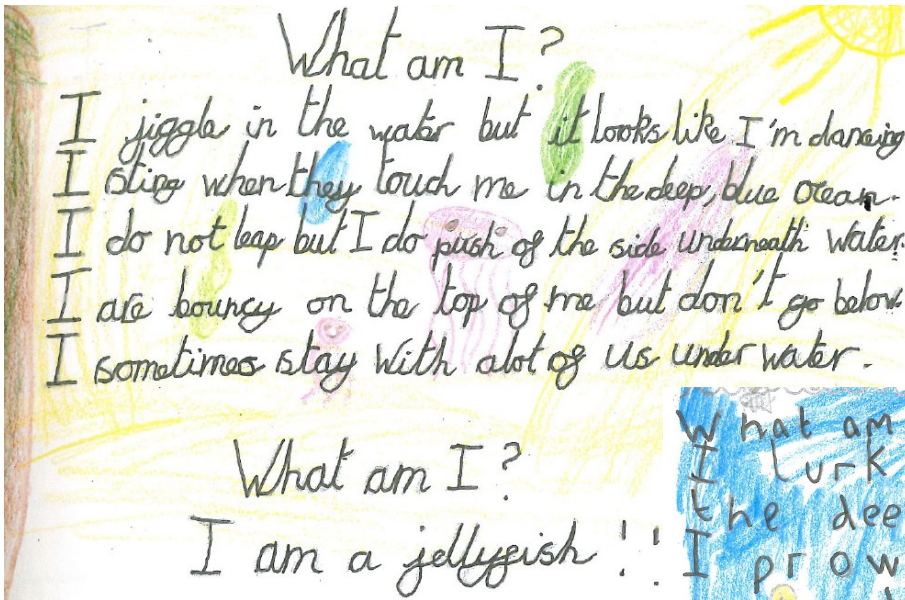 What am I?
I jiggle in the water but it looks like I'm dancing
I sting when they touch me in the deep, blue ocean.
I do not leap but I do push of the side underneath water.
I are bouncy on the top of me but don't go below.
I sometimes stay with alot of us under water.
What am I?
I am a jellyfish !!
What am
I lurk
the dee
I prow